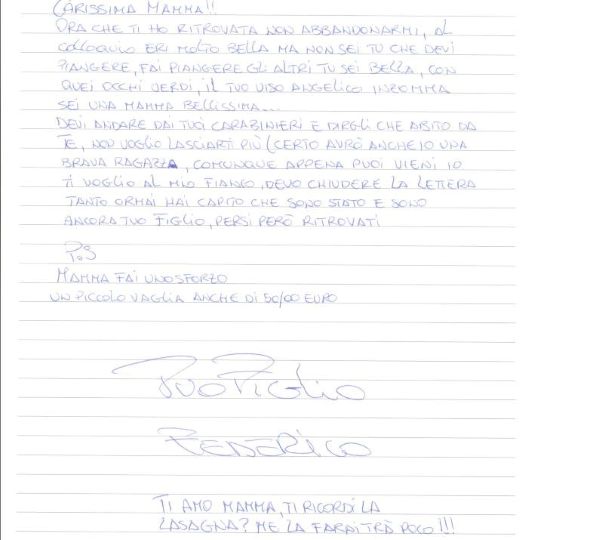 CARISSIMA MAMMA!!
ORA CHE TI HO RITROVATA NON ABBANDONARMI, AL
COLLOQUIO ERI MOLTO BELLA MA NON SEI TU CHE DEVI
PIANGERE, FAI PIANGERE GLI ALTRI TU SEI BELLA, CON
QUEI OCCHI VERDI, IL TUO VISO ANGELICO INZOMMA
SEI UNA MAMMA BELLISSIMA...
DEVI ANDARE DAI TUOI CARABINIERI E DIRGLI CHE ABITO DA
TE, NON VOGLIO LASCIARTI PIÙ (CERTO AVRÒ ANCHE IO UNA
BRAVA RAGAZZA, COMUNQUE APPENA PUOI VIENI IO
TI VOGLIO AL MIO FIANCO, DEVO CHIUDERE LA LETTERA
TANTO ORMAI HAI CAPITO CHE SONO STATO E SONO
ANCORA TUO FIGLIO, PERSI PERÒ RITROVATI
P.S
MAMMA FAI UNO SFORZO
UN PICCOLO VAGLIA ANCHE DI 50/00 EURO
TUO FIGLIO
FEDERICO
TI AMO MAMMA, TI RICORDI LA
LASAGNA? ME LA FARAI TRÀ POCO!!!